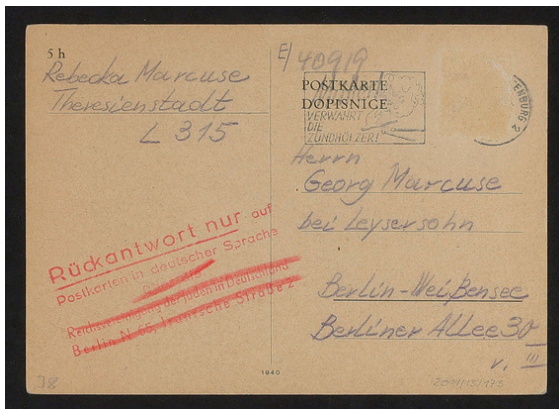 5 h
Rebecka Marcuse
Theresienstadt
L 315
E/ 40919
POSTKARTE
DOPISNICE
VERWAHRT
DIE
ZÜNDHÖLZER!
ENBURG 2
Herrn
Georg Marcuse
bei Leysersohn
Berlin-Weißensee
Berliner Allee 30
v. III
Rückantwort nur auf
Postkarten in deutscher Sprache
Reichsvereinigung der Juden in Deutschland
Berlin N 65, Iranische Straße 2
1940
78